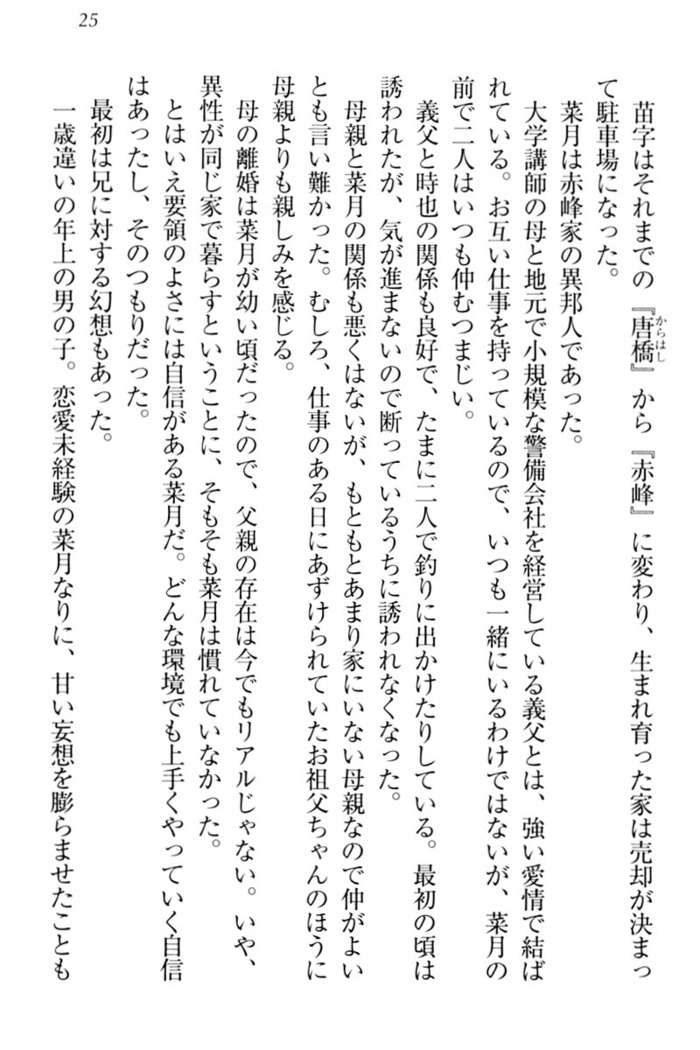 25
苗字はそれまでの『唐橋』から『赤峰』に変わり、生まれ育った家は売却が決まっ
からはし
て駐車場になった。
菜月は赤峰家の異邦人であった。
大学講師の母と地元で小規模な警備会社を経営している義父とは、強い愛情で結ば
れている。お互い仕事を持っているので、いつも一緒にいるわけではないが、菜月の
前で二人はいつも仲むつまじい。
義父と時也の関係も良好で、たまに二人で釣りに出かけたりしている。最初の頃は
誘われたが、気が進まないので断っているうちに誘われなくなった。
母親と菜月の関係も悪くはないが、もともとあまり家にいない母親なので仲がよい
とも言い難かった。むしろ、仕事のある日にあずけられていたお祖父ちゃんのほうに
母親よりも親しみを感じる。
母の離婚は菜月が幼い頃だったので、父親の存在は今でもリアルじゃない。いや、
異性が同じ家で暮らすということに、そもそも菜月は慣れていなかった。
とはいえ要領のよさには自信がある菜月だ。どんな環境でも上手くやっていく自信
はあったし、そのつもりだった。
最初は兄に対する幻想もあった。
一歳違いの年上の男の子。恋愛未経験の菜月なりに、甘い妄想を膨らませたことも